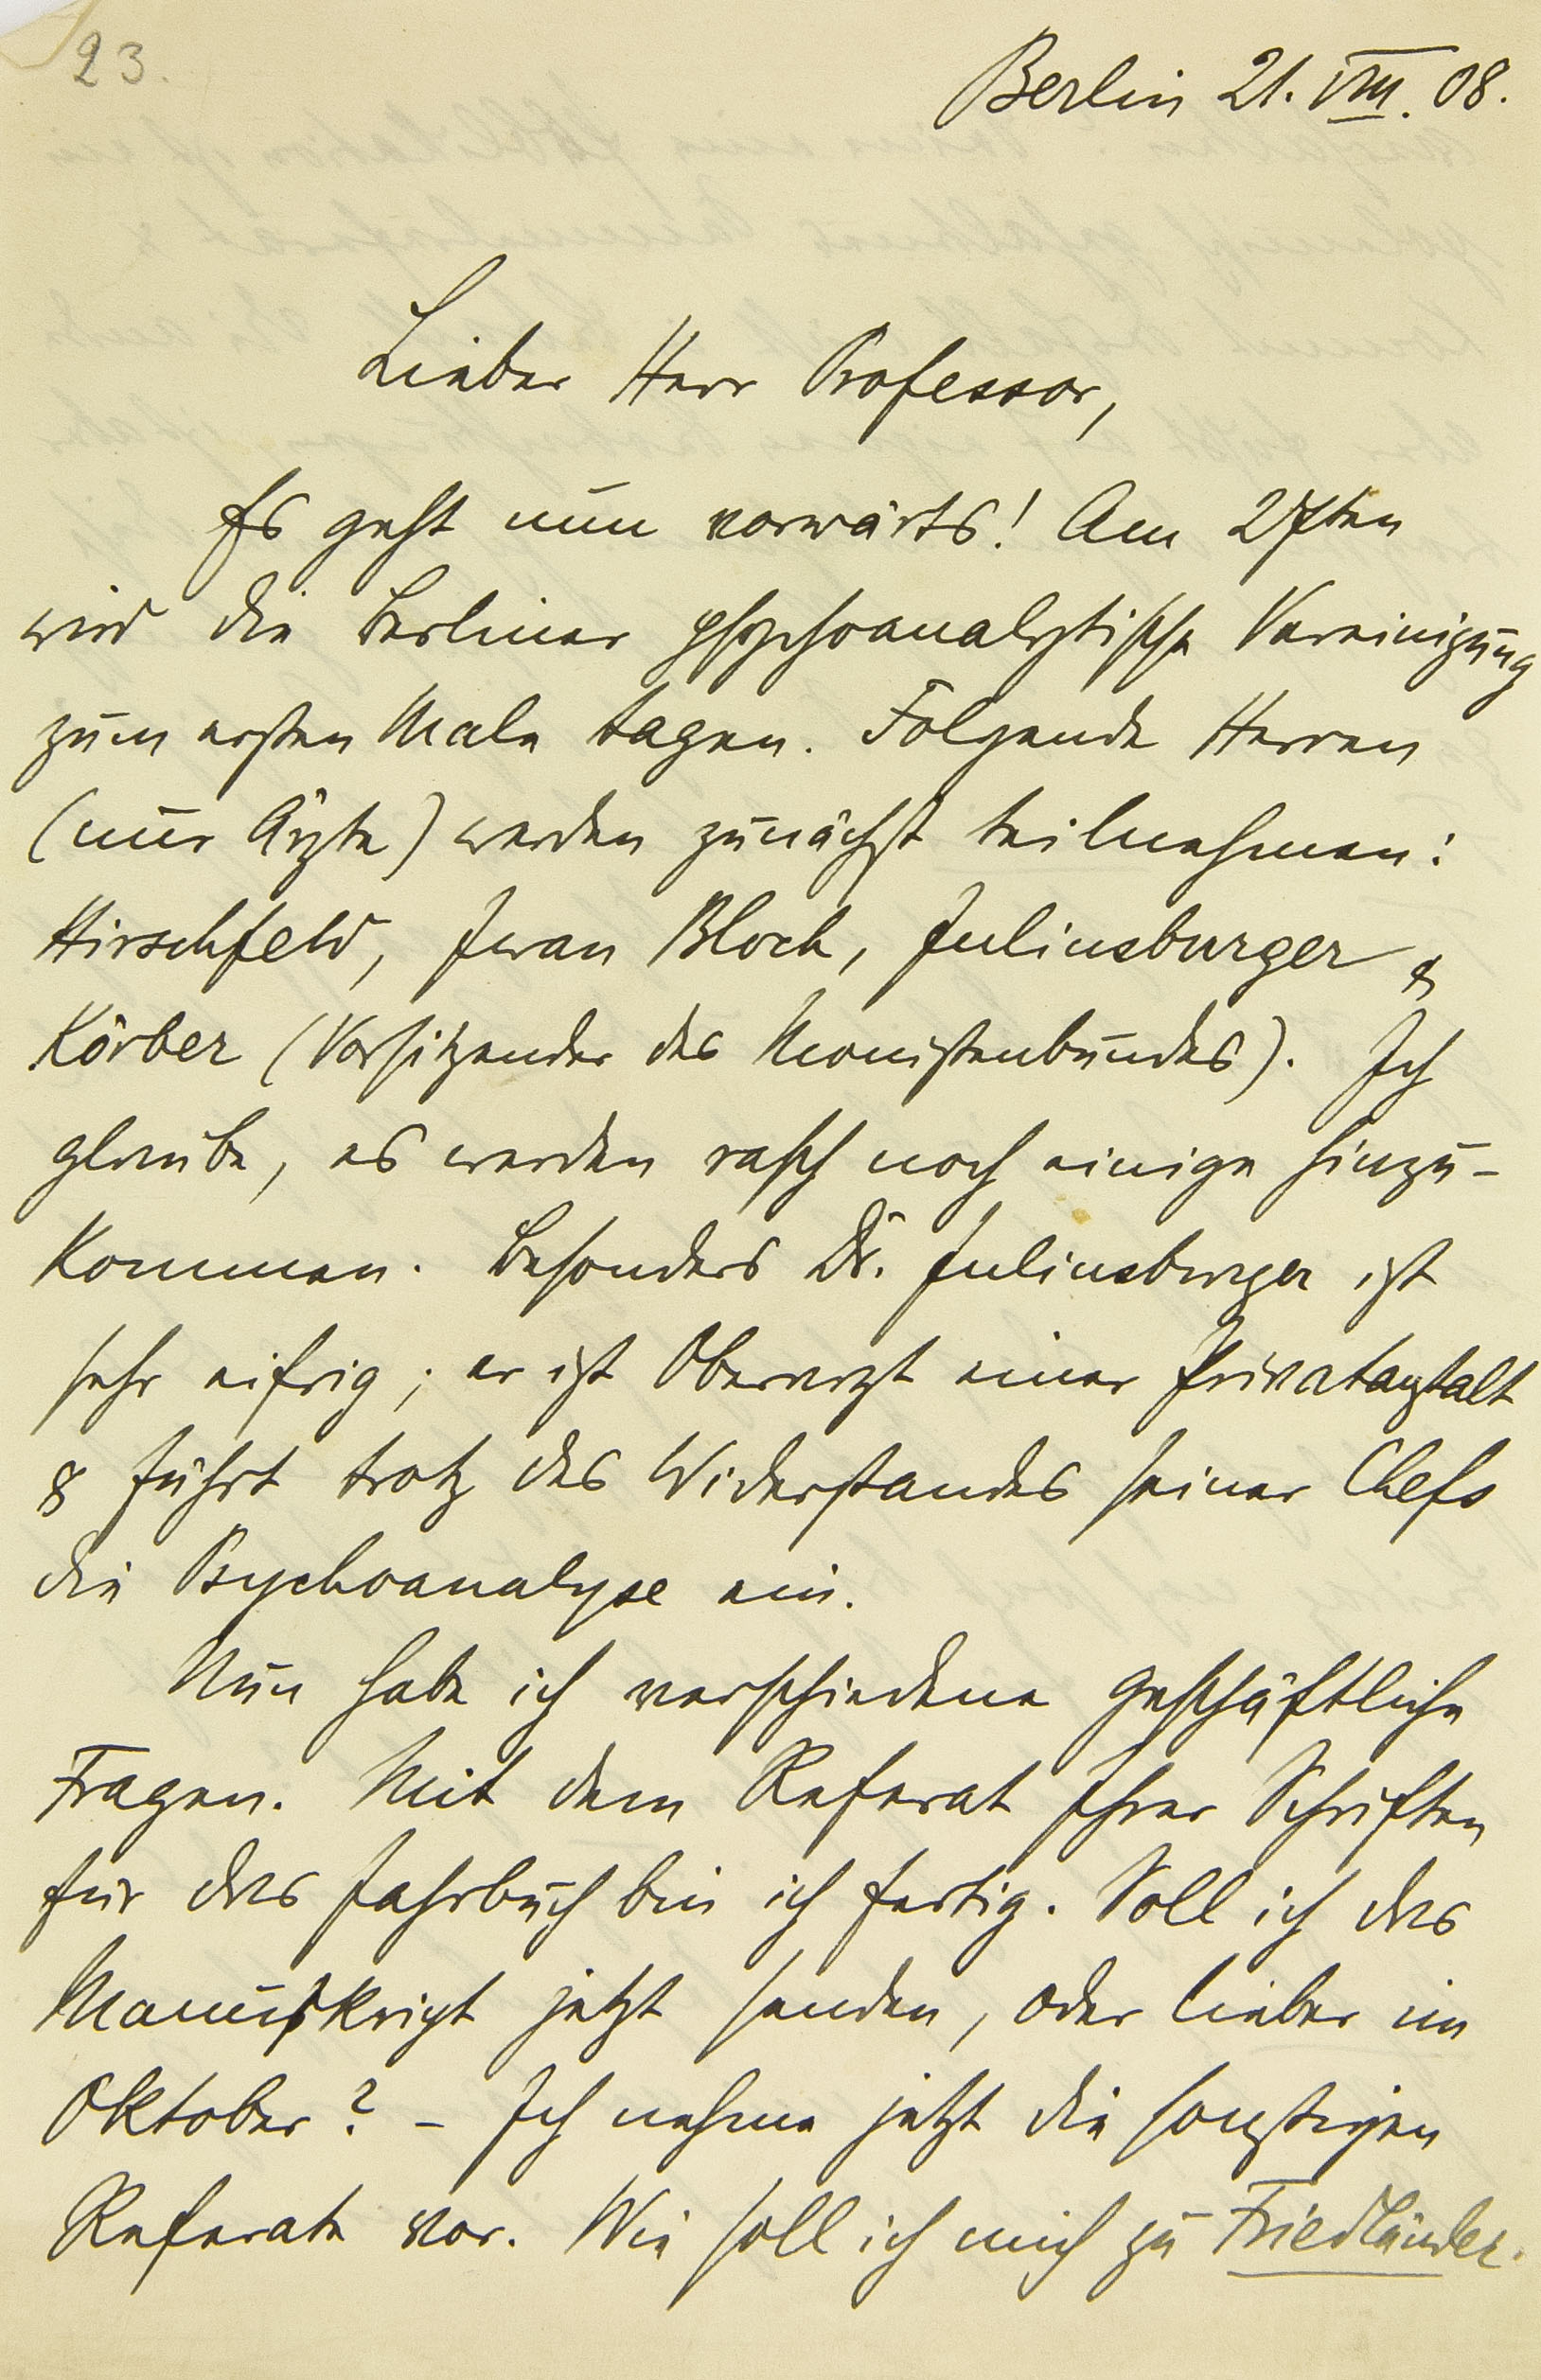 23.
Berlin 21. VIII. 08.
Lieber Herr Professor,
Es geht nun vorwärts! Am 27ten
wird die Berliner psychoanalytische Vereinigung
zum ersten Male tagen. Folgende Herren
(nur Ärzte) werden zunächst teilnehmen:
Hirschfeld, Iwan Bloch, Juliusburger &
Körber (Vorsitzender des Monistenbundes). Ich
glaube, es werden rasch noch einige hinzu-
kommen. Besonders Dr. Juliusburger ist
sehr eifrig; er ist Oberarzt einer Privatanstalt
& führt trotz des Widerstandes seiner Chefs
die Psychoanalyse ein.
Nun habe ich verschiedene geschäftliche
Fragen. Mit dem Referat Ihrer Schriften
für das Jahrbuch bin ich fertig. Soll ich das
Manuskript jetzt senden, oder lieber im
Oktober? – Ich nehme jetzt die sonstigen
Referate vor. Wie soll ich mich zu Friedländer.